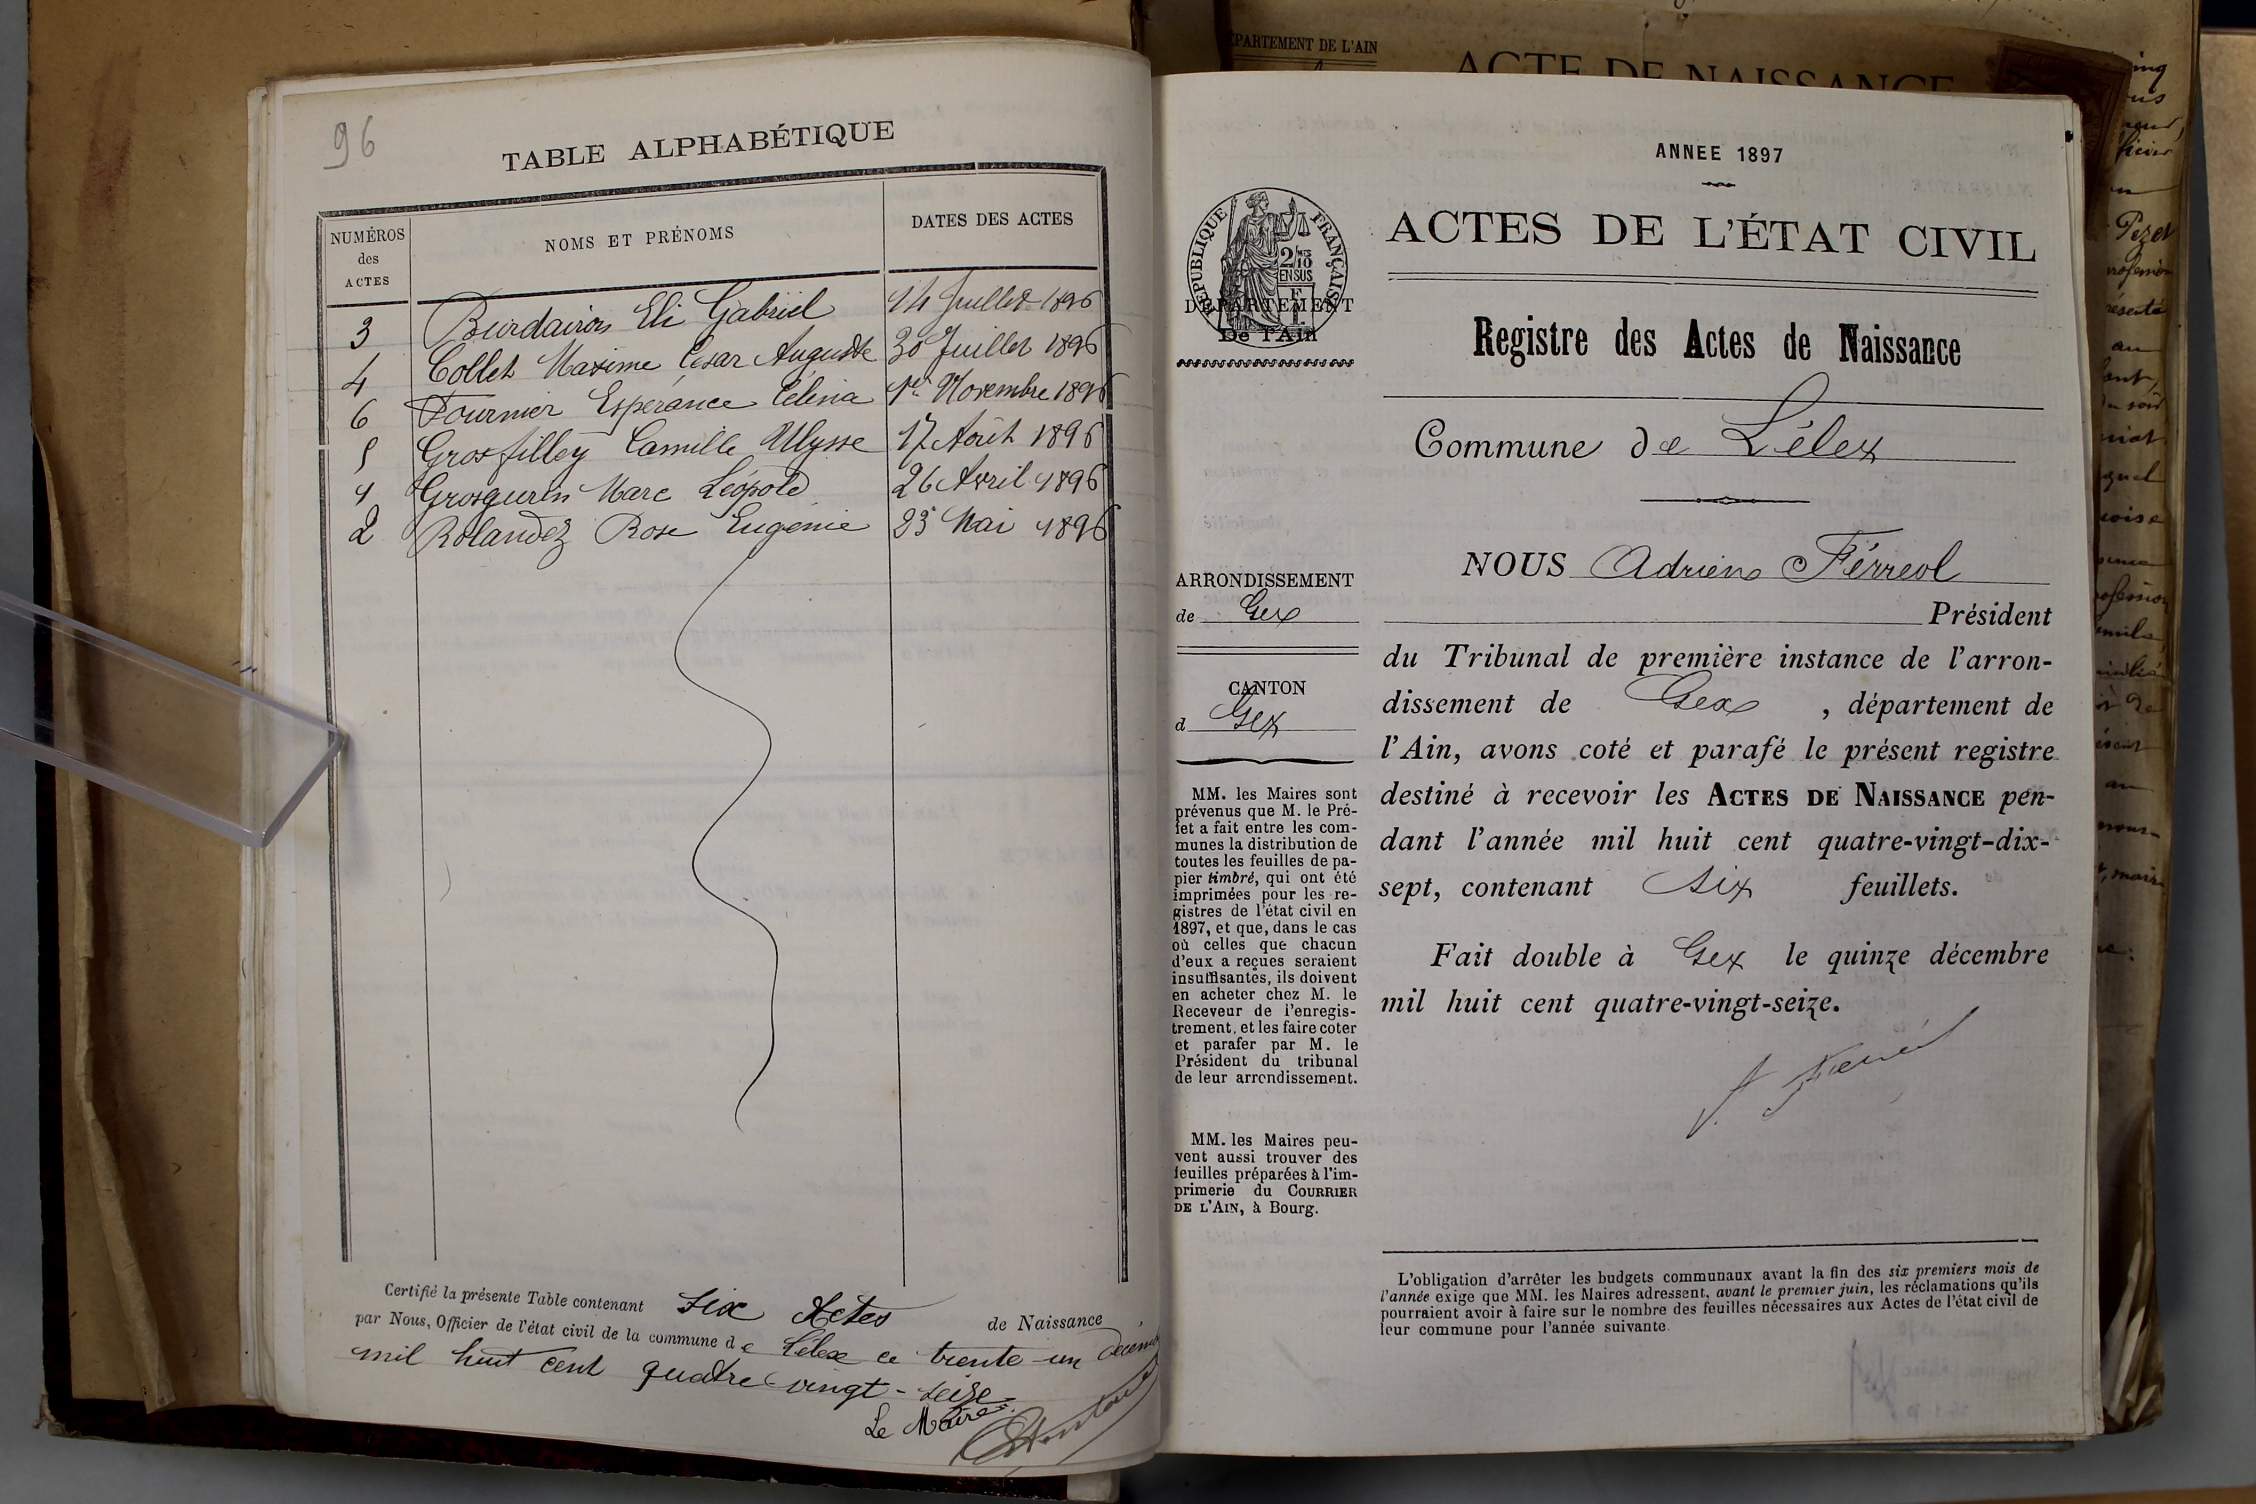 96
TABLE ALPHABÉTIQUE
NUMÉROS des ACTES
NOMS ET PRÉNOMS
DATES DES ACTES
3 Burdairon Eli Gabriel 14 Juillet 1896
4 Collet Maxime César Auguste 30 Juillet 1896
6 Fournier Espérance Célina 1er Novembre 1896
5 Grosfilley Camille Ulysse 17 Août 1896
1 Grosgurin Marc Léopold 26 Avril 1896
2 Rolandez Rose Eugénie 23 Mai 1896
Certifié la présente Table contenant six Actes de Naissance
par Nous, Officier de l'état civil de la commune de Lélex ce trente-un décembre
mil huit cent quatre vingt-seize
Le Maire
DÉPARTEMENT DE L'AIN
ACTE DE NAISSANCE
ANNEE 1897
RÉPUBLIQUE FRANÇAISE
2/10 EN SUS
DÉPARTEMENT
De l'Ain
ARRONDISSEMENT
de Gex
CANTON
d Gex
MM. les Maires sont
prévenus que M. le Pré-
fet a fait entre les com-
munes la distribution de
toutes les feuilles de pa-
pier timbré, qui ont été
imprimées pour les re-
gistres de l'état civil en
1897, et que, dans le cas
où celles que chacun
d'eux a reçues seraient
insuffisantes, ils doivent
en acheter chez M. le
Receveur de l'enregis-
trement, et les faire coter
et parafer par M. le
Président du tribunal
de leur arrondissement.
MM. les Maires peu-
vent aussi trouver des
feuilles préparées à l'im-
primerie du COURRIER
DE L'AIN, à Bourg.
ACTES DE L'ÉTAT CIVIL
Registre des Actes de Naissance
Commune de Lélex
NOUS Adrien Férreol
Président
du Tribunal de première instance de l'arron-
dissement de Gex, département de
l'Ain, avons coté et parafé le présent registre
destiné à recevoir les ACTES DE NAISSANCE pen-
dant l'année mil huit cent quatre-vingt-dix-
sept, contenant six feuillets.
Fait double à Gex le quinze décembre
mil huit cent quatre-vingt-seize.
L'obligation d'arrêter les budgets communaux avant la fin des six premiers mois de
l'année exige que MM. les Maires adressent, avant le premier juin, les réclamations qu'ils
pourraient avoir à faire sur le nombre des feuilles nécessaires aux Actes de l'état civil de
leur commune pour l'année suivante.